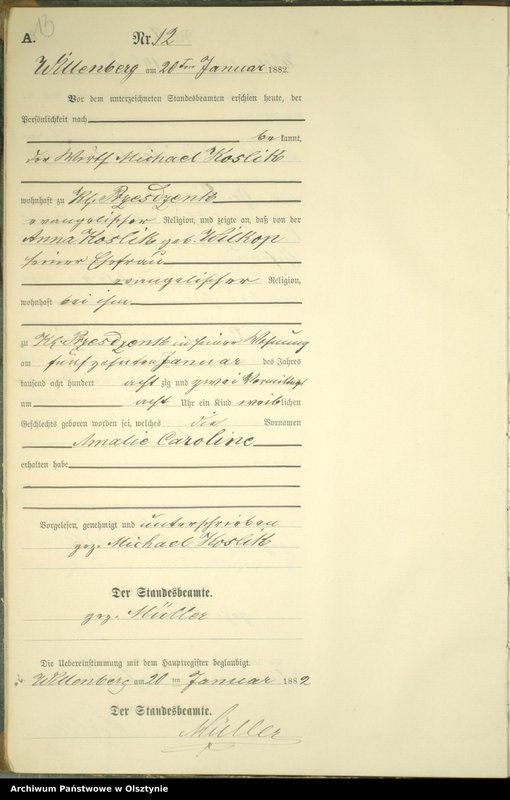 13
A.
Nr. 12
Willenberg am 20ten Januar 1882.
Vor dem unterzeichneten Standesbeamten erschien heute, der
Persönlichkeit nach
bekannt,
der Wirth Michael Koslik
wohnhaft zu Kl. Przesdzenk
evangelischer Religion, und zeigte an, daß von der
Anna Koslik geb. Wilkop
seiner Ehefrau
evangelischer Religion,
wohnhaft bei ihm
zu Kl. Przesdzenk in seiner Wohnung
am fünfzehnten Januar des Jahres
tausend acht hundert achtzig und zwei Vormittags
um acht Uhr ein Kind weiblichen
Geschlechts geboren worden sei, welches die Vornamen
Amalie Caroline
erhalten habe
Vorgelesen, genehmigt und unterschrieben
gez. Michael Koslik
Der Standesbeamte.
gez. Müller
Die Uebereinstimmung mit dem Hauptregister beglaubigt.
Willenberg am 20 ten Januar 1882
Der Standesbeamte.
Müller
Archiwum Państwowe w Olsztynie